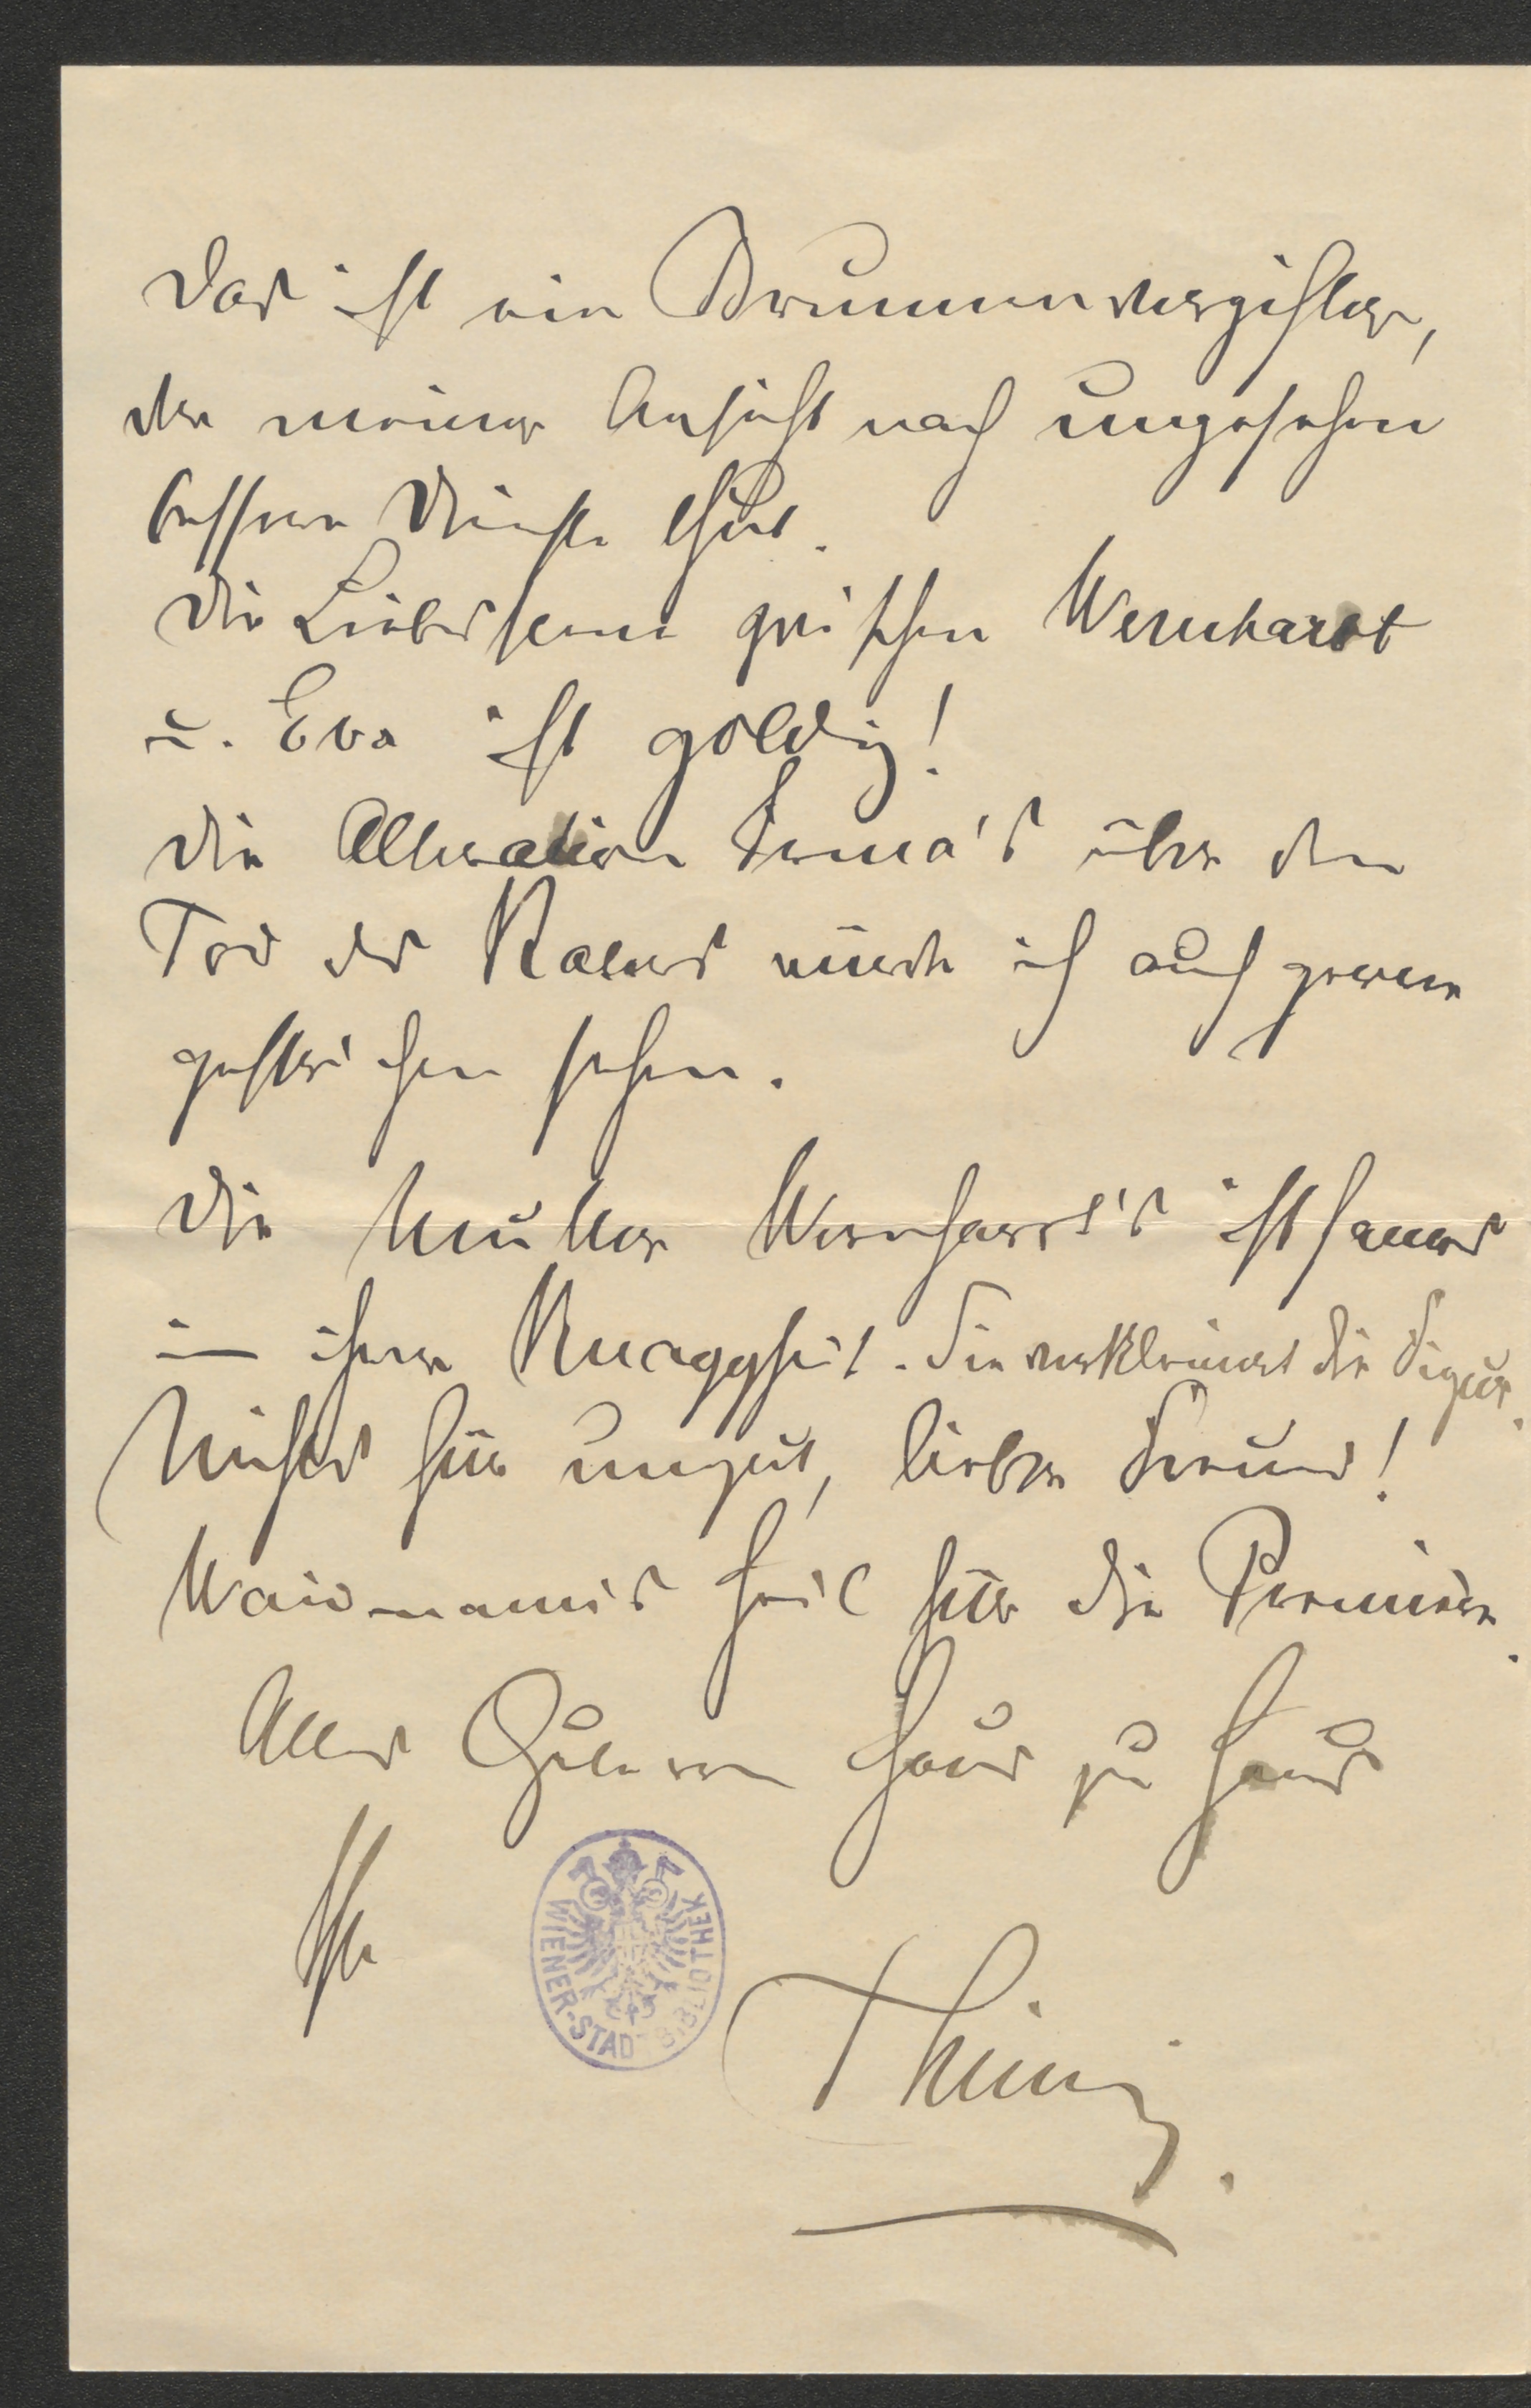 Das ist ein Brunnenvergifter,
der meiner Ansicht nach ungesehen
bessere Dienste thut.
Die Liebesscene zwischen Wernhardt
u. Eva ist goldig!
Die Alteration Irma's über den
Tod des Katers würde ich auch gerne
gestrichen sehen.
Die Mutter Wernhardt's ist famos
in ihrer Knappheit. Sie verkleinert die Figur.
Nichts für ungut, lieber Freund!
Waidmanns Heil für die Première.
Alles Gute von Haus zu Haus
Ihr
WIENER-STADTBIBLIOTHEK
Thimig.